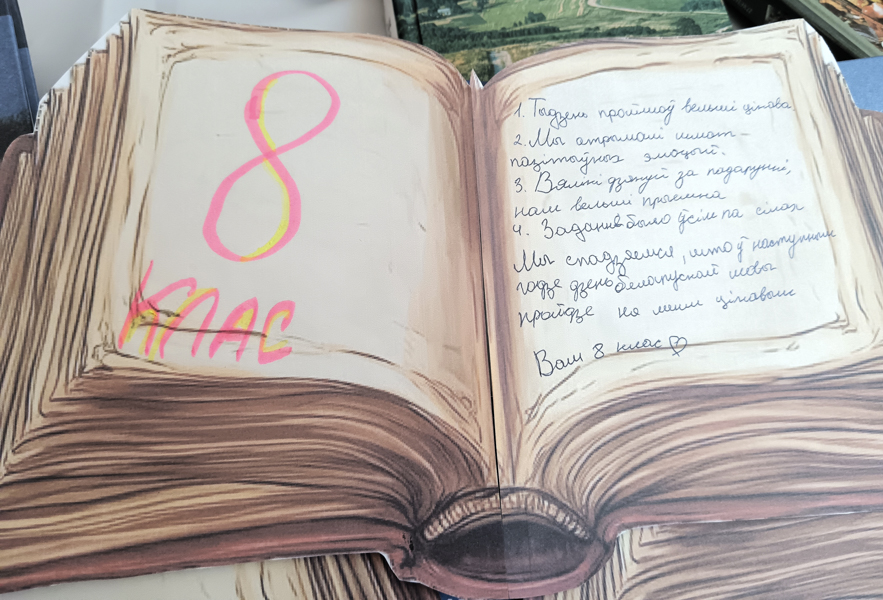 8
КЛАС
1. Тыдзень прайшоў вельмі цікава.
2. Мы атрымалі шмат
пазітыўных эмоцый.
3. Вялікі дзякуй за падарункі,
нам вельмі прыемна
4. Заданне было ўсім па сілах
Мы спадзяемся, што ў наступным
годзе дзень беларускай мовы
пройдзе не менш цікавым
Ваш 8 клас ♡